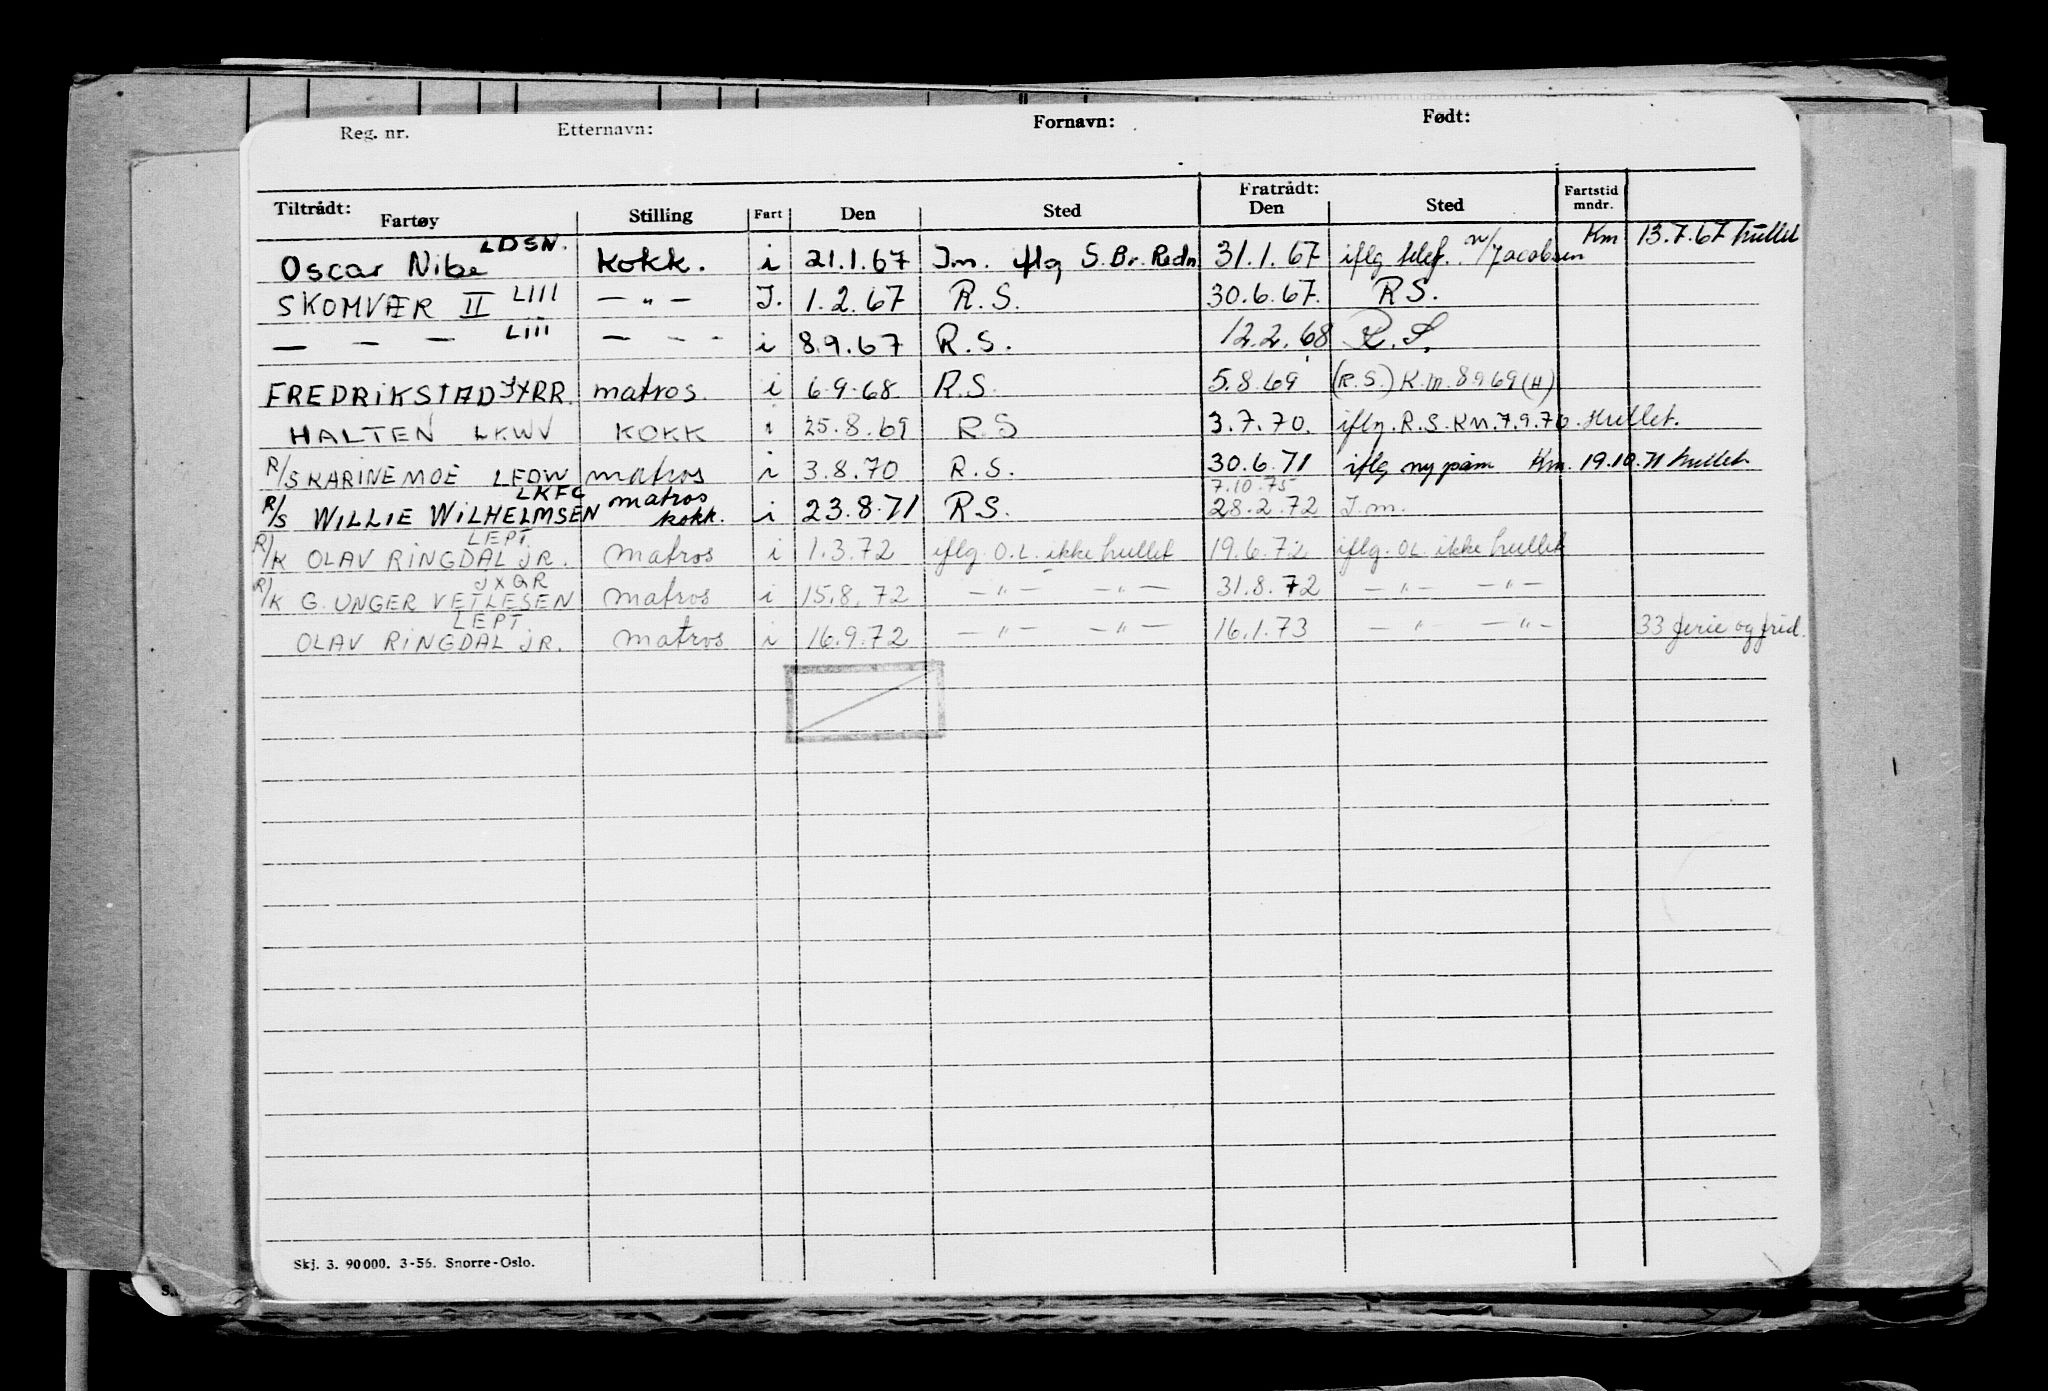 Reg. nr. Etternavn: Fornavn: Født:
Tiltrådt: Fratrådt:
Fartøy Stilling Fart Den Sted Den Sted Fartstid mndr.
Oscar Nibe LDSN. kokk. i 21.1.67 I.m. iflg S.Br. Redn 31.1.67 iflg telef. m/Jacobsen Km 13.7.67 hullet
SKOMVÆR II LIII — " — I. 1.2.67 R.S. 30.6.67. R.S.
— — — LIII — - - i 8.9.67 R.S. 12.2.68 R.S.
FREDRIKSTAD JXRR. matros. i 6.9.68 R.S. 5.8.69 (R.S.) K.m. 8969 (H)
HALTEN LKWV KOKK i 25.8.69 R.S 3.7.70. iflg. R.S. Km. 7.9.70. Hullet.
R/S KARINE MOE LEDW matros i 3.8.70 R.S. 30.6.71 iflg ny påm Km. 19.10.71 hullet
R/S WILLIE WILHELMSEN LKFC matros kokk. i 23.8.71 R.S. 7.10.75 28.2.72 I.m.
R/K OLAV RINGDAL JR. LEPT matros i 1.3.72 iflg. O.L. ikke hullet 19.6.72 iflg. O.L. ikke hullet
R/K G. UNGER VETLESEN JXQR matros i 15.8.72 — " — — " — 31.8.72 — " — — " —
OLAV RINGDAL JR. LEPT matros i 16.9.72 — " — — " — 16.1.73 — " — — " — 33 ferie og frid.
Skj. 3. 90000. 3-56. Snorre-Oslo.